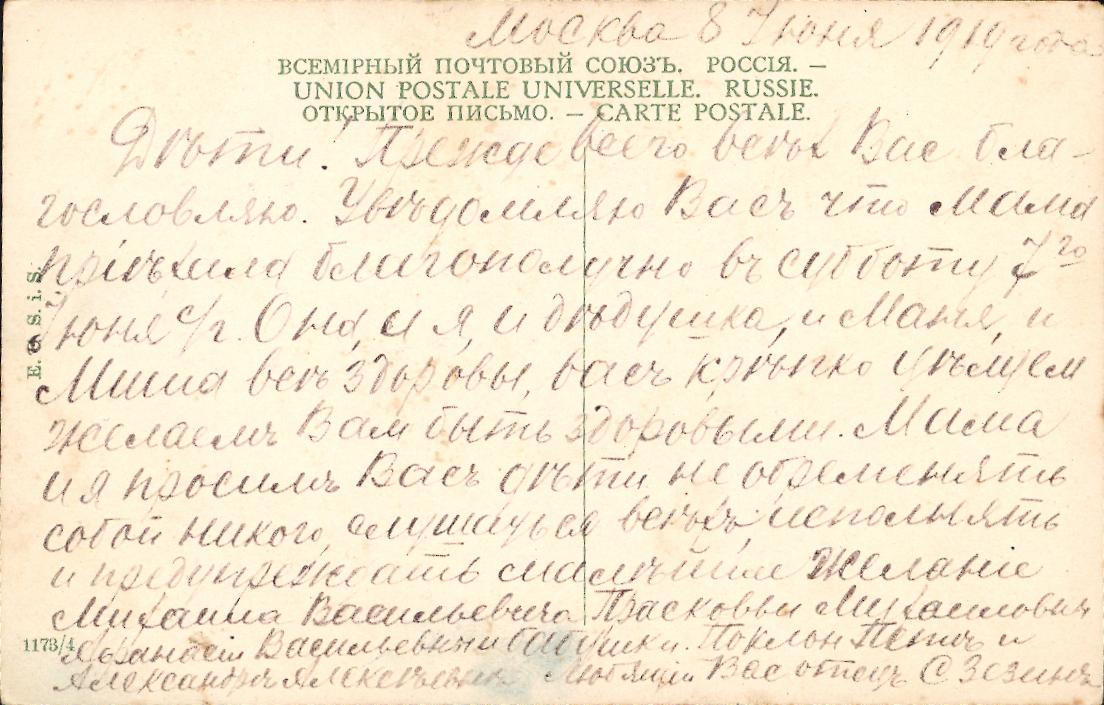 Москва 8 Июня 1919 года
ВСЕМІРНЫЙ ПОЧТОВЫЙ СОЮЗЪ. РОССІЯ. –
UNION POSTALE UNIVERSELLE. RUSSIE.
ОТКРЫТОЕ ПИСЬМО. – CARTE POSTALE.
Дѣти! Прежде всего всѣхъ Вас бла-
гословляю. Увѣдомляю Васъ что Мама
пріѣхала благополучно въ субботу 7го
Июня с/г. Она, и я, и дѣдушка, и Маня, и
Миша всѣ здоровы, васъ крѣпко цѣлуем
желаемъ Вам быть здоровыми. Мама
и я просимъ Васъ дѣти не обременять
собой никого, слушаться всѣхъ, исполнять
и предупреждать малѣйшие желание
Михаила Васильевича Прасковьи Михайловны
Афанасіи Васильевны и бабушки. Поклон Петѣ и
Александрѣ Алексѣевнѣ Любящій Вас отецъ С Зезинъ
E. G. S. i. S.
1173/4